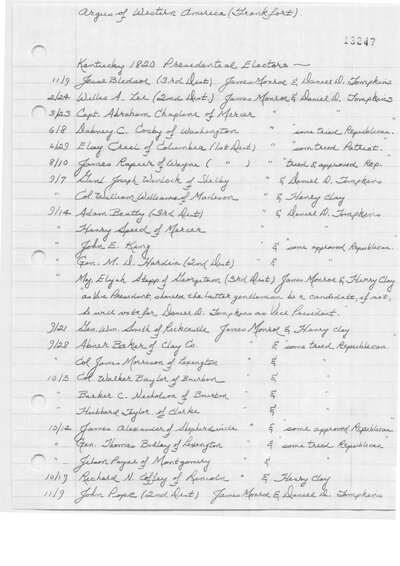 Argus of Western America (Frankfort).
13247
Kentucky 1820 Presidential Electors —
11/9 Jesse Bledsoe (3rd Dist) James Monroe & Daniel D. Tompkins
2/24 Willis A. Lee (2nd Dist) James Monroe & Daniel D. Tompkins
3/23 Capt. Abraham Chapline of Mercer " " "
6/8 Dabney C. Cosby of Washington " "some tried Republican.
6/29 Elsey Creel of Columbia (1st Dist) " "som tried Patriot.
8/10 James Rapier of Wayne ( " ) " "tried & approved Rep."
9/7 Genl Joseph Winlock of Shelby " & Daniel D. Tompkins
" Col. William Williams of Madison " & Henry Clay
9/14 Adam Beatty (3rd Dist) " & Daniel D. Tompkins
" Henry Speed of Mercer "
" John E. King " & "some approved Republican.
" Gen. M. D. Hardin (2nd Dist) " & "
" Maj. Elijah Stapp of Georgetown (3rd Dist) James Monroe & Henry Clay
as Vice President, should the latter gentleman be a candidate, if not,
he will vote for Daniel D. Tompkins as Vice President.
9/21 Gen. Wm. Smith of Rockcastle James Monroe & Henry Clay
9/28 Abner Baker of Clay Co. " & "some tried Republican.
Col. James Morrison of Lexington " & "
10/5 Col. Walker Baylor of Bourbon " & "
" Barker C. Nicholson of Bourbon " & "
" Hubbard Taylor of Clarke " & "
10/12 James Alexander of Shepherdsville " & "some approved Republican
" Gen. Thomas Bodley of Lexington " & some tried Republican"
" Jilson Payne of Montgomery " & "
10/19 Richard N. Coffey of Lincoln " & Henry Clay
11/9 John Pope (2nd Dist) James Monroe & Daniel D. Tompkins